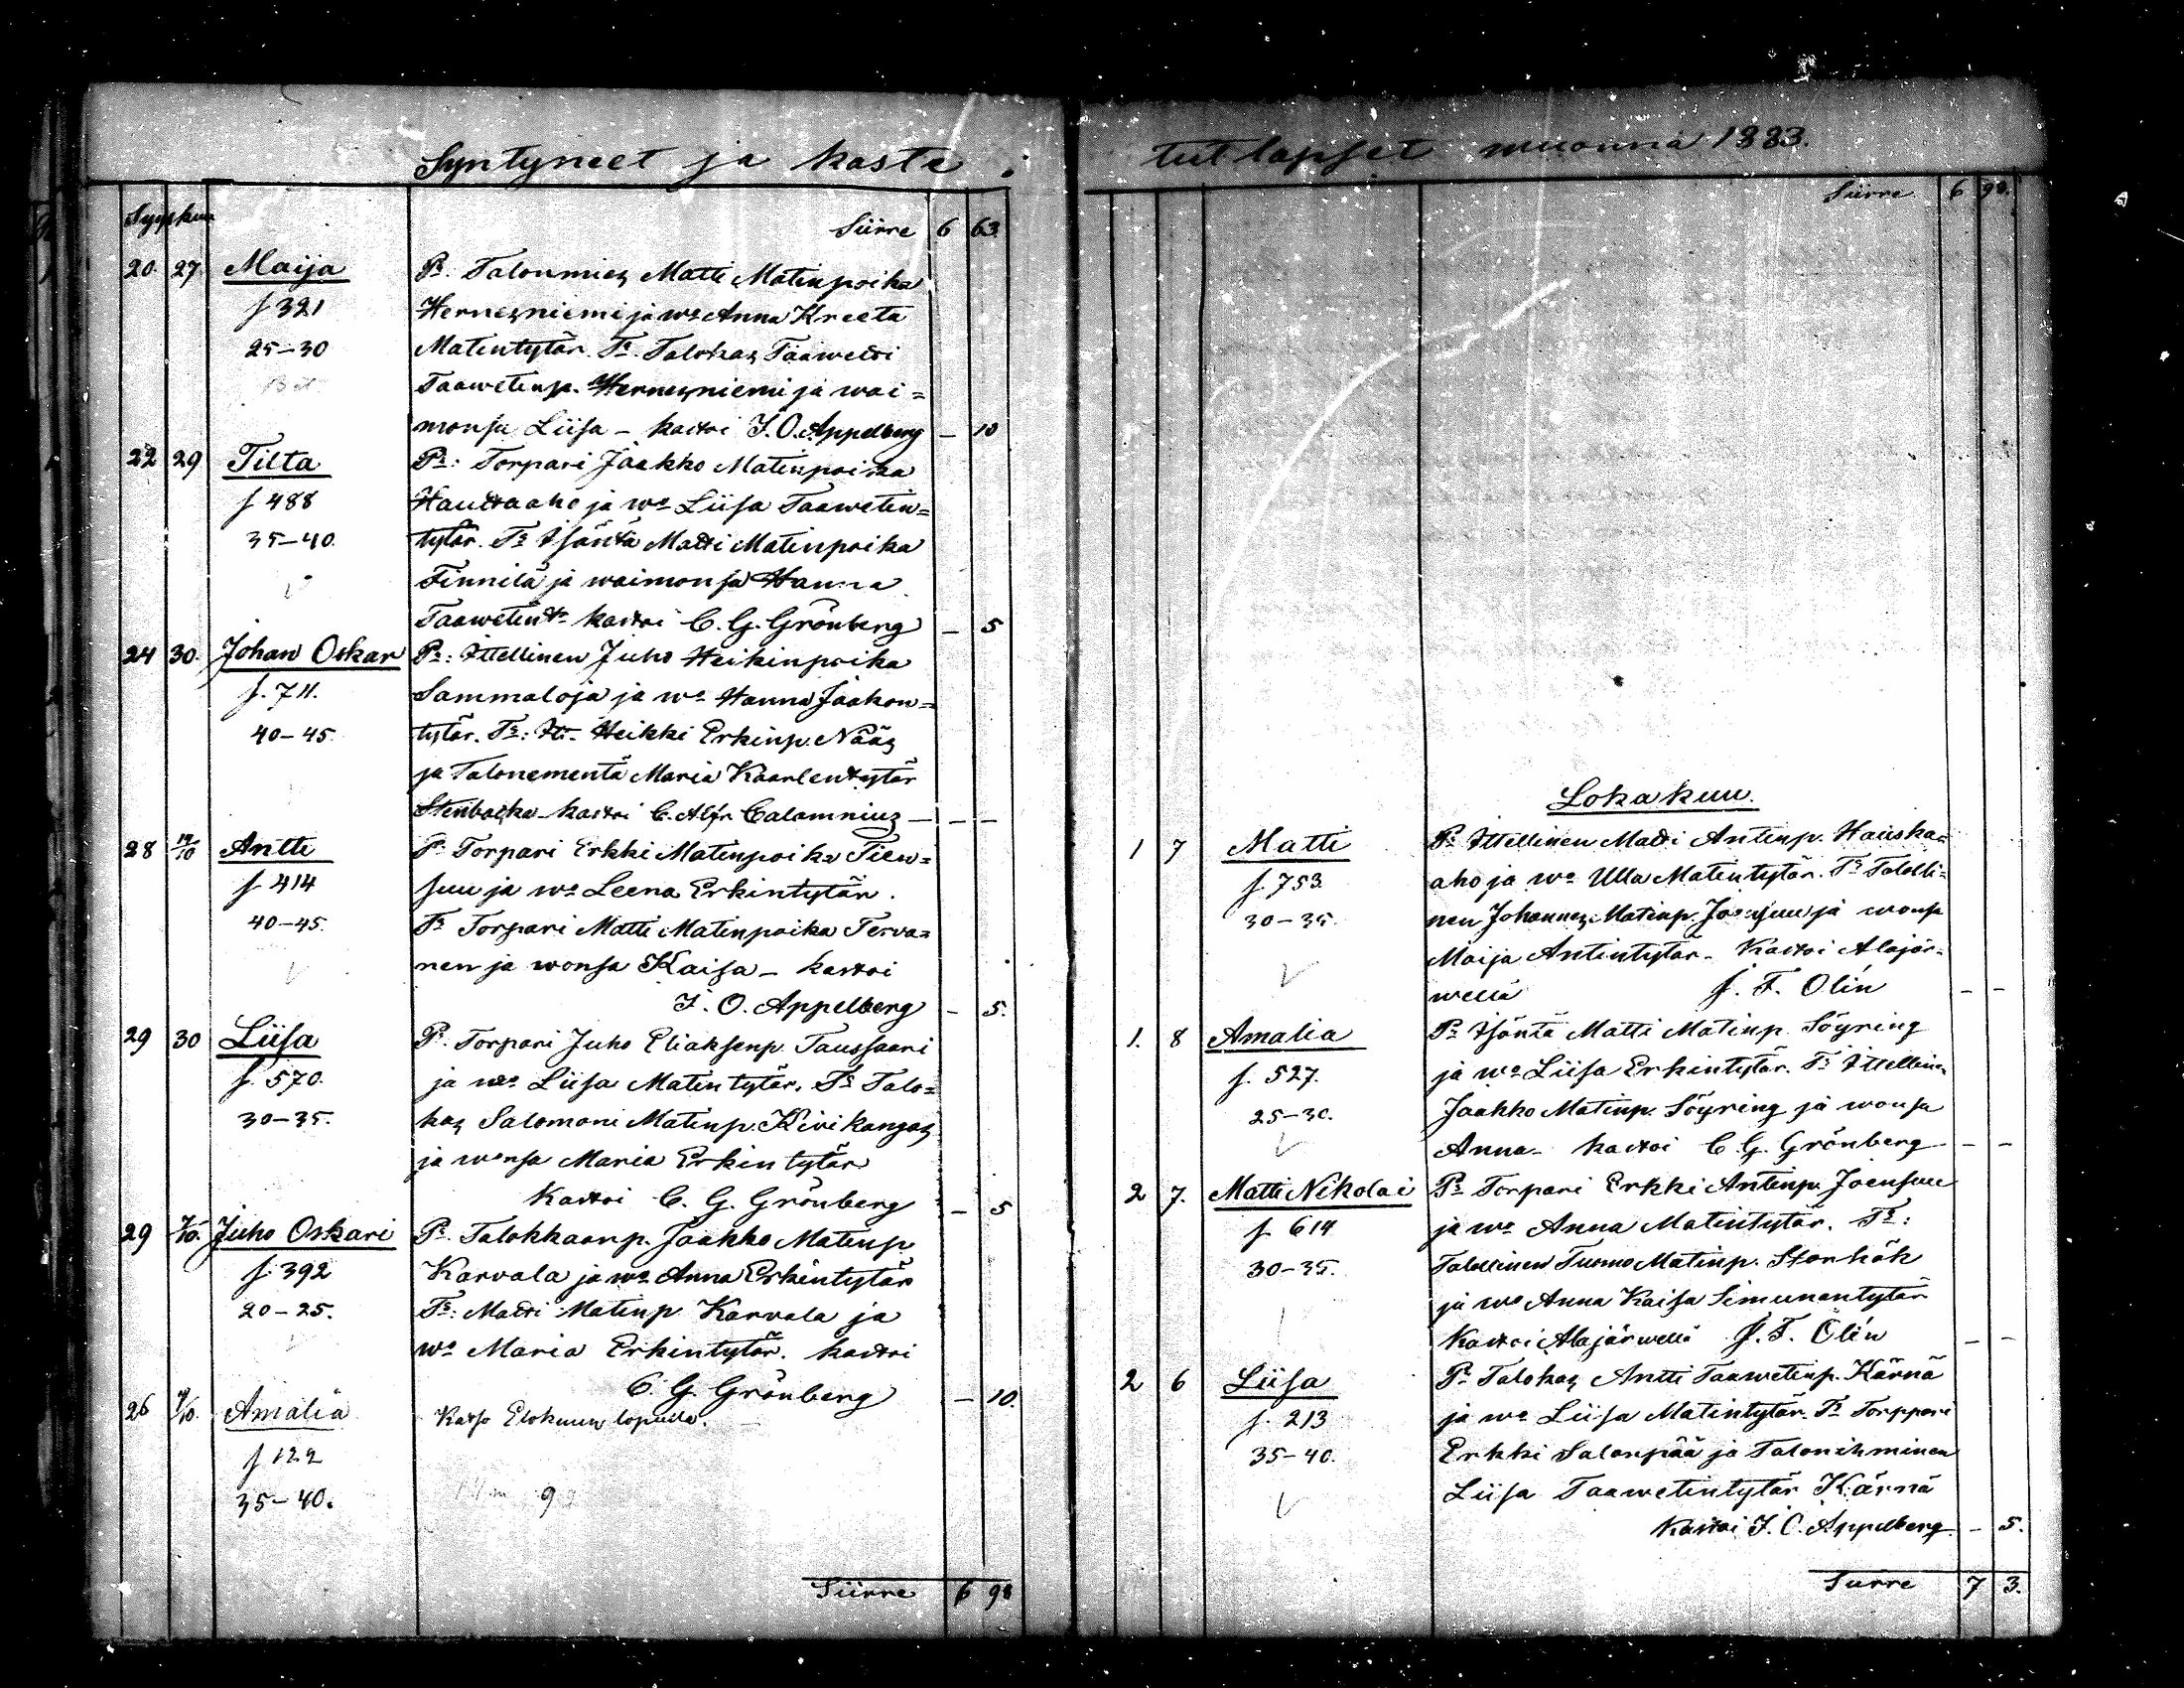 Syntyneet ja kaste
Syyskuu
Siirre 6 63.
20. 27. Maija Ps. Talonmies Matti Matinpoika
f 321 Hernesniemi ja wo Anna Kreeta
25-30 Matintytär. Ts. Talokas Taawetti
Taawetinp. Hernesniemi ja wai=
monsa Liisa - kastoi J. O. Appelberg - 10
22 29 Tilta Ps: Torpari Jaakko Matinpoika
f 488 Hautaaho ja wo Liisa Taawetin=
35-40. tytär. Ts Isäntä Matti Matinpoika
Finnilä ja waimonsa Hanna
Taawetint. kastoi C. G. Grönberg - 5
24 30. Johan Oskar Ps: Itellinen Juho Heikinpoika
f. 711. Sammaloja ja wo Hanna Jaakon=
40-45. tytär. Ts: It. Heikki Erkinp. Nääs
ja Talonementä Maria Kaarlentytär
Stenbacka kastoi C. Alfr Calamnius - - -
28 14/10 Antti Ps Torpari Erkki Matinpoika Tien=
f 414 suu ja wo Leena Erkintytär.
40-45. Ts Torpari Matti Matinpoika Terva=
nen ja wonsa Kaisa - kastoi
J. O. Appelberg - 5.
29 30 Liisa Ps. Torpari Juho Eliaksenp. Taussaari
f. 570. ja wo Liisa Matintytär. Ts Talo=
30-35. kas Salomoni Matinp. Kivikangas
ja wonsa Maria Erkintytär
Kastoi C. G. Grönberg - 5
29 7/10. Juho Oskari Ps. Talokkaanp. Jaakko Matinp
f. 392 Karvala ja wo Anna Erkintytär
20-25. Ts: Matti Matinp Karvala ja
wo Maria Erkintytär. kastoi
C. G. Grönberg - 10.
26 /10. Amalia Katso Elokuun lopulla.
f 122
35-40. 9
Siirre 6 98
tut lapset wuonna 1883.
Siirre 6 98.
Lokakuu.
1 7 Matti Ps. Itellinen Matti Antinp. Hauska=
f. 753. aho ja wo Ulla Matintytär. Ts Talolli=
30-35. nen Johannes Matinp. Joensuu ja wonsa
Maija Antintytär - Kastoi Alajär=
wellä J. F. Olin - -
1. 8 Amalia Ps Isäntä Matti Matinp Söyring
f. 527. ja wo Liisa Erkintytär. Ts Itellinen
25-30. Jaakko Matinp. Söyring ja wonsa
Anna - kastoi C. G. Grönberg - -
2 7. Matti Nikolai Ps Torpari Erkki Antinp. Joensuu
f 614 ja wo Anna Matintytär. Ts:
30-35. Talollinen Tuomo Matinp. Storhök
ja wo Anna Kaisa Simunantytär
Kastoi Alajärwellä J. F. Olin - -
2 6 Liisa Ps Talokas Antti Taawetinp. Kärnä
f. 213 ja wo Liisa Matintytär. Ts Torppari
35-40. Erkki Salonpää ja Talonihminen
Liisa Taawetintytär Kärnä
Kastoi J. O. Appelberg - 5.
Siirre 7 3.